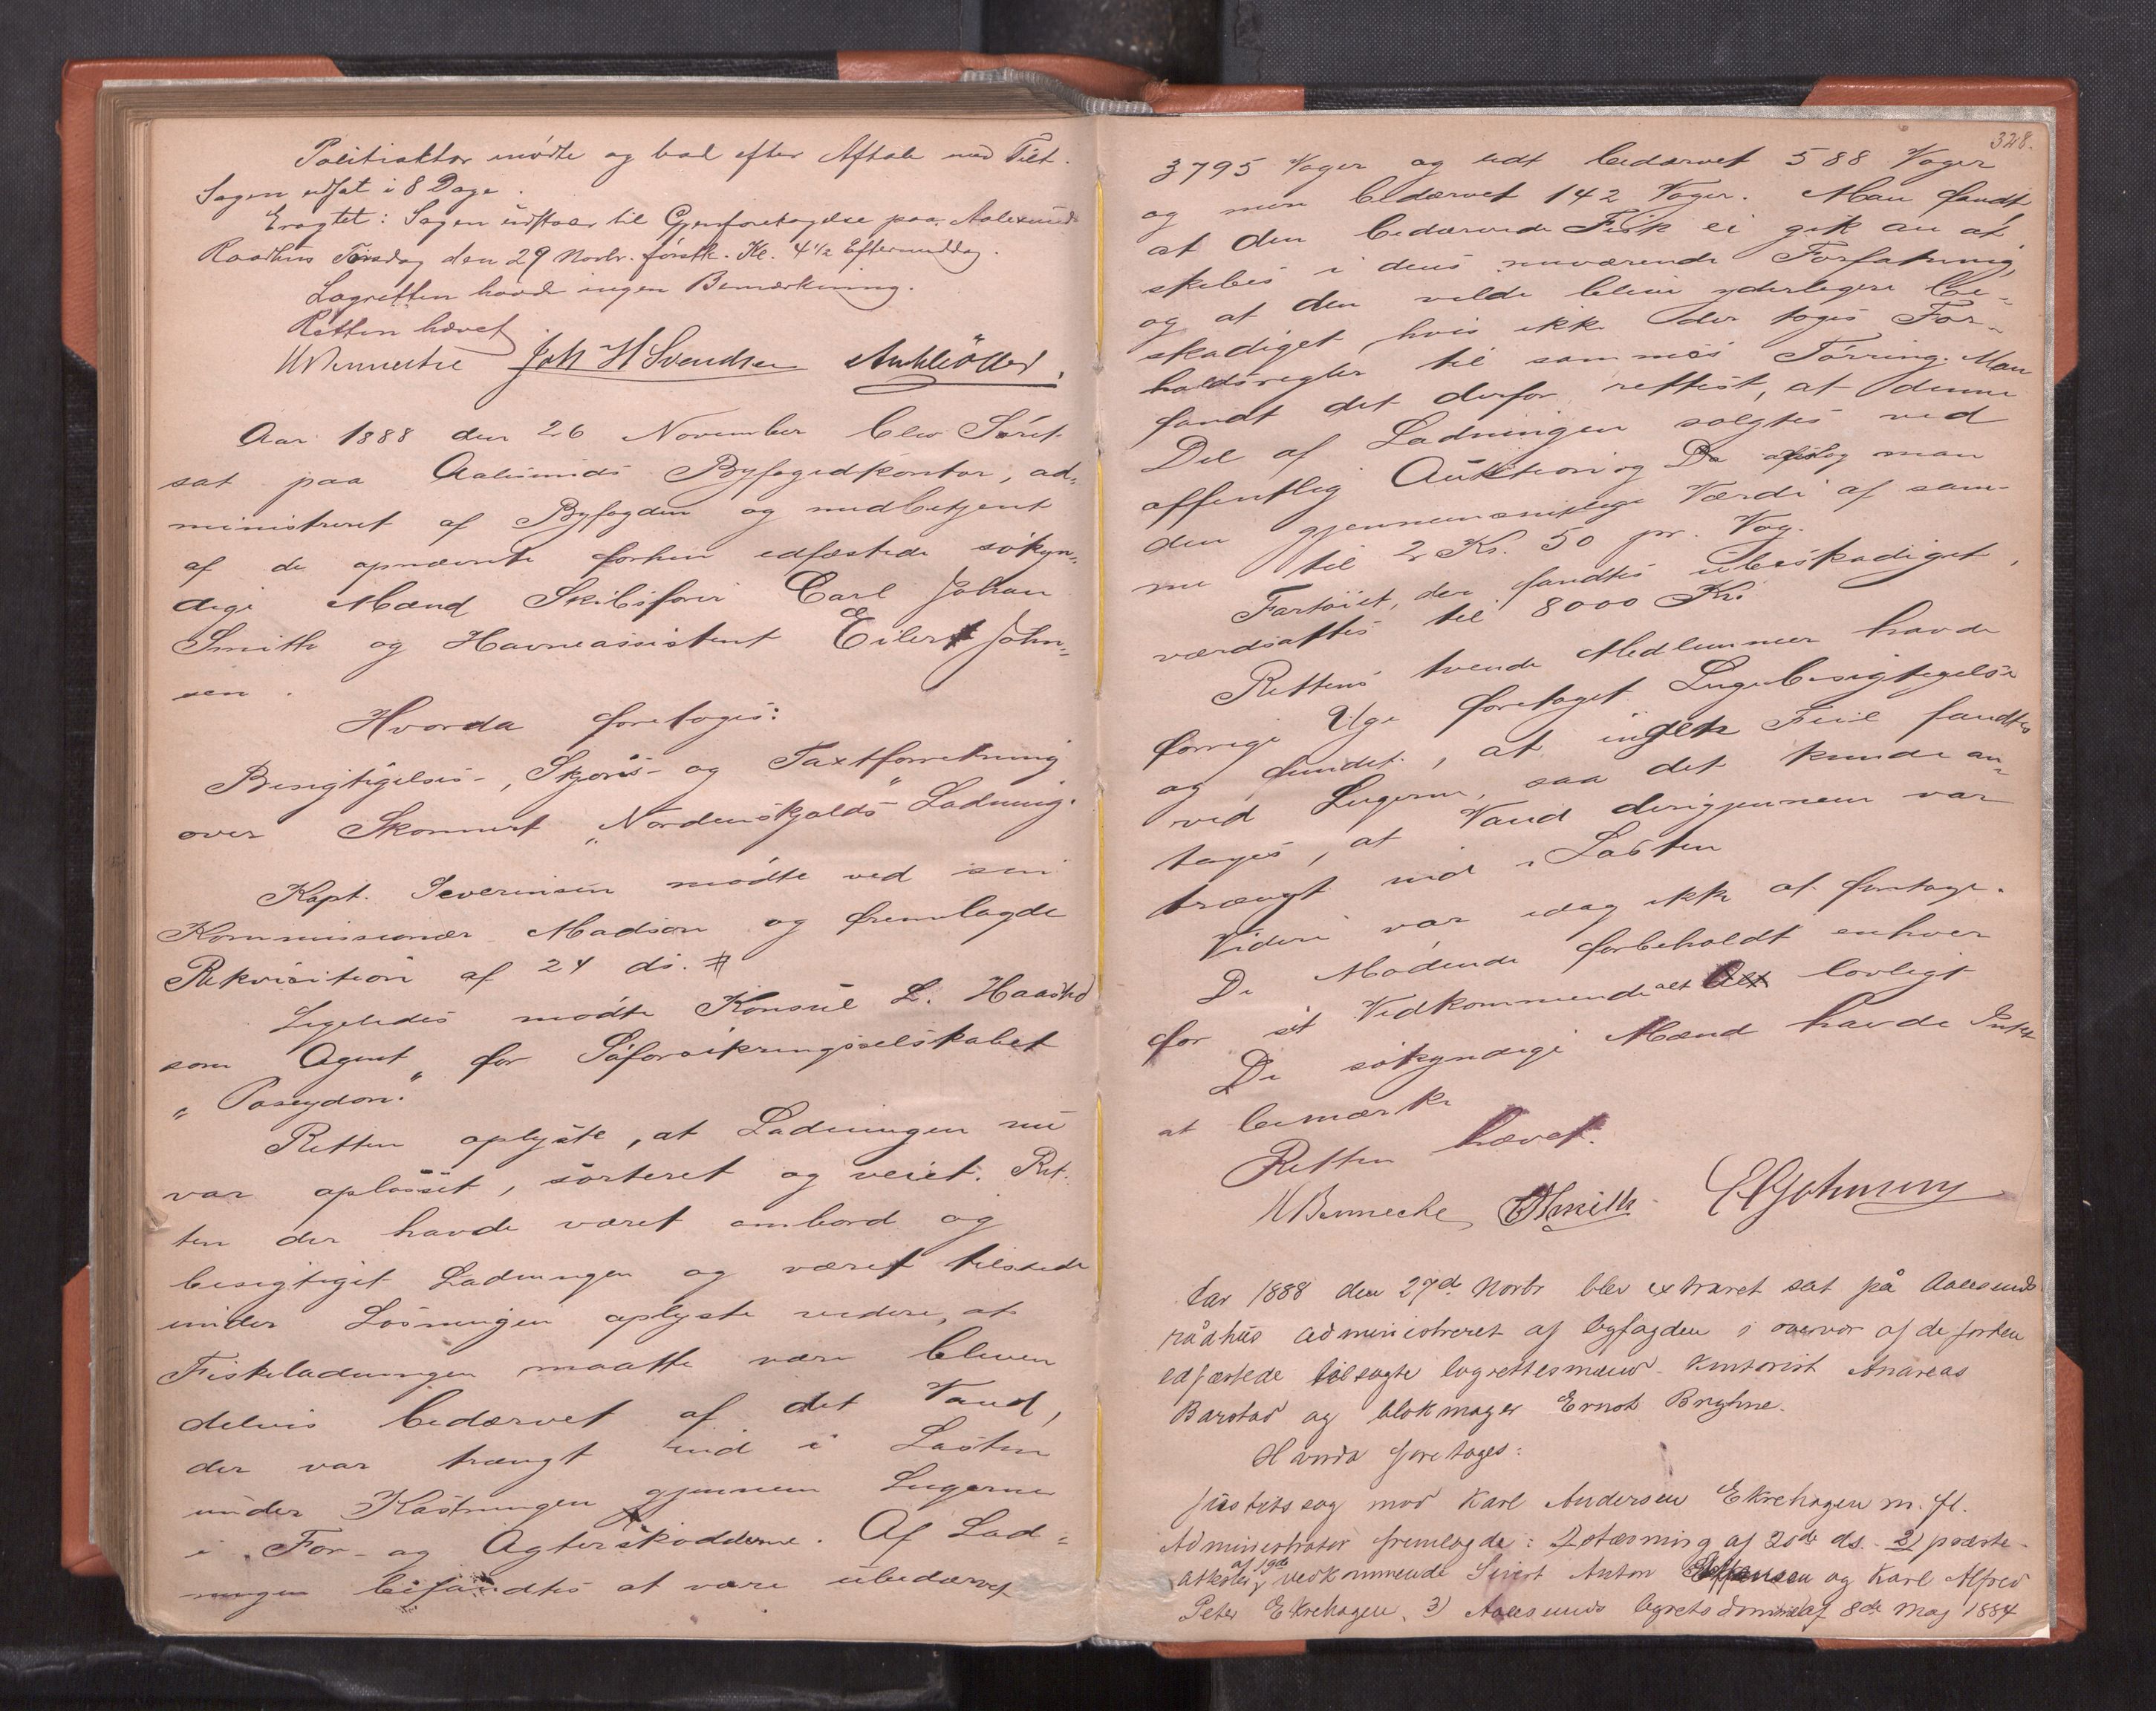 Politiaktor mødte og bad efter Aftale med Tilt.
Sagen udsat i 8 Dage.
Eragtet: Sagen udstaar til Gjenforetagelse paa Aalesunds
Raadhus Tirsdag den 29 Novbr. førstk. Kl. 4 1/2 Eftermiddag.
Lagretten havde ingen Bemærkning.
Retten hævet
Joh H Svendsen
Aar 1888 den 26 November blev Søret
sat paa Aalesunds Byfogedkontor, ad-
ministreret af Byfogden og medbetjent
af de opnævnte forhen edfæstede søkyn-
dige Mænd Skibsfører Carl Johan
Smith og Havneassistent Eilert John-
sen.
Hvorda foretoges:
Besigtigelses-, Skjøns- og Taxtforretning
over Skonnert "Nordenskjolds" Ladning.
Kapt. Severinsen mødte ved sin
Kommissionær Madsen og fremlagde
Rekvisition af 24 ds. #
Ligeledes mødte Konsul L. Haasted
som Agent for Søforsikringsselskabet
"Poseydon."
Retten oplyste, at Ladningen nu
var oplosset, sorteret og veiet. Ret-
ten der havde været ombord og
besigtiget Ladningen og været tilstede
under Losningen oplyste videre, at
Fiskeladningen maatte være bleven
delvis bedærvet af det Vand,
der var trængt ind i Lasten
under Kastningen gjennem Lugerne
i For- og Agterskodderne. Af Lad-
ningen befandtes at være ubedærvet
328.
3795 Voger og lidt bedærvet 588 Voger
og mere bedærvet 142 Voger. Man fandt,
at den bedærvede Fisk ei gik an at
skibes i dens nuværende Forfatning,
og at den vilde blive yderligere be-
skadiget, hvis ikke der toges For-
holdsregler til sammes Tørring. Man
fandt det derfor rettest, at denne
Del af Ladningen solgtes ved
offentlig Auktion og man
den gjennemsnitlige Værdi af sam-
me til 2 Kr. 50 pr. Vog.
Fartøiet, der fandtes ubeskadiget,
værdsattes til 8000 Kr.
Rettens tvende Medlemmer havde
forrige Uge foretaget Lugebesigtigelse
og fundet, at ingen Feil fandtes
ved Lugerne, saa det kunde an-
tages, at Vand derigjennem var
trængt ind i Lasten
Videre var idag ikke at foretage.
De Mødende forbeholdt enhver
for sit Vedkommende alt lovligt
De søkyndige Mænd havde Intet
at bemærke
Retten hævet.
M Bennecke CJSmith EJohnsen
Aar 1888 den 27de Novbr blev extraret sat på Aalesunds
rådhus administreret af byfogden i overvær af de forhen
edfæstede tilsagte lagrettesmænd kontorist Andreas
Barstad og blokmager Ernst Bryhne.
Hvorda foretoges:
Justitssag mod Karl Andersen Ekrehagen m. fl.
Administrator fremlagde: 1) stævning af 20de ds. 2) præste-
attester af 19de vedkommende Sivert Anton og Karl Alfred
Peter Ekrehagen. 3) Aalesunds byrets dom af 8de Maj 1884